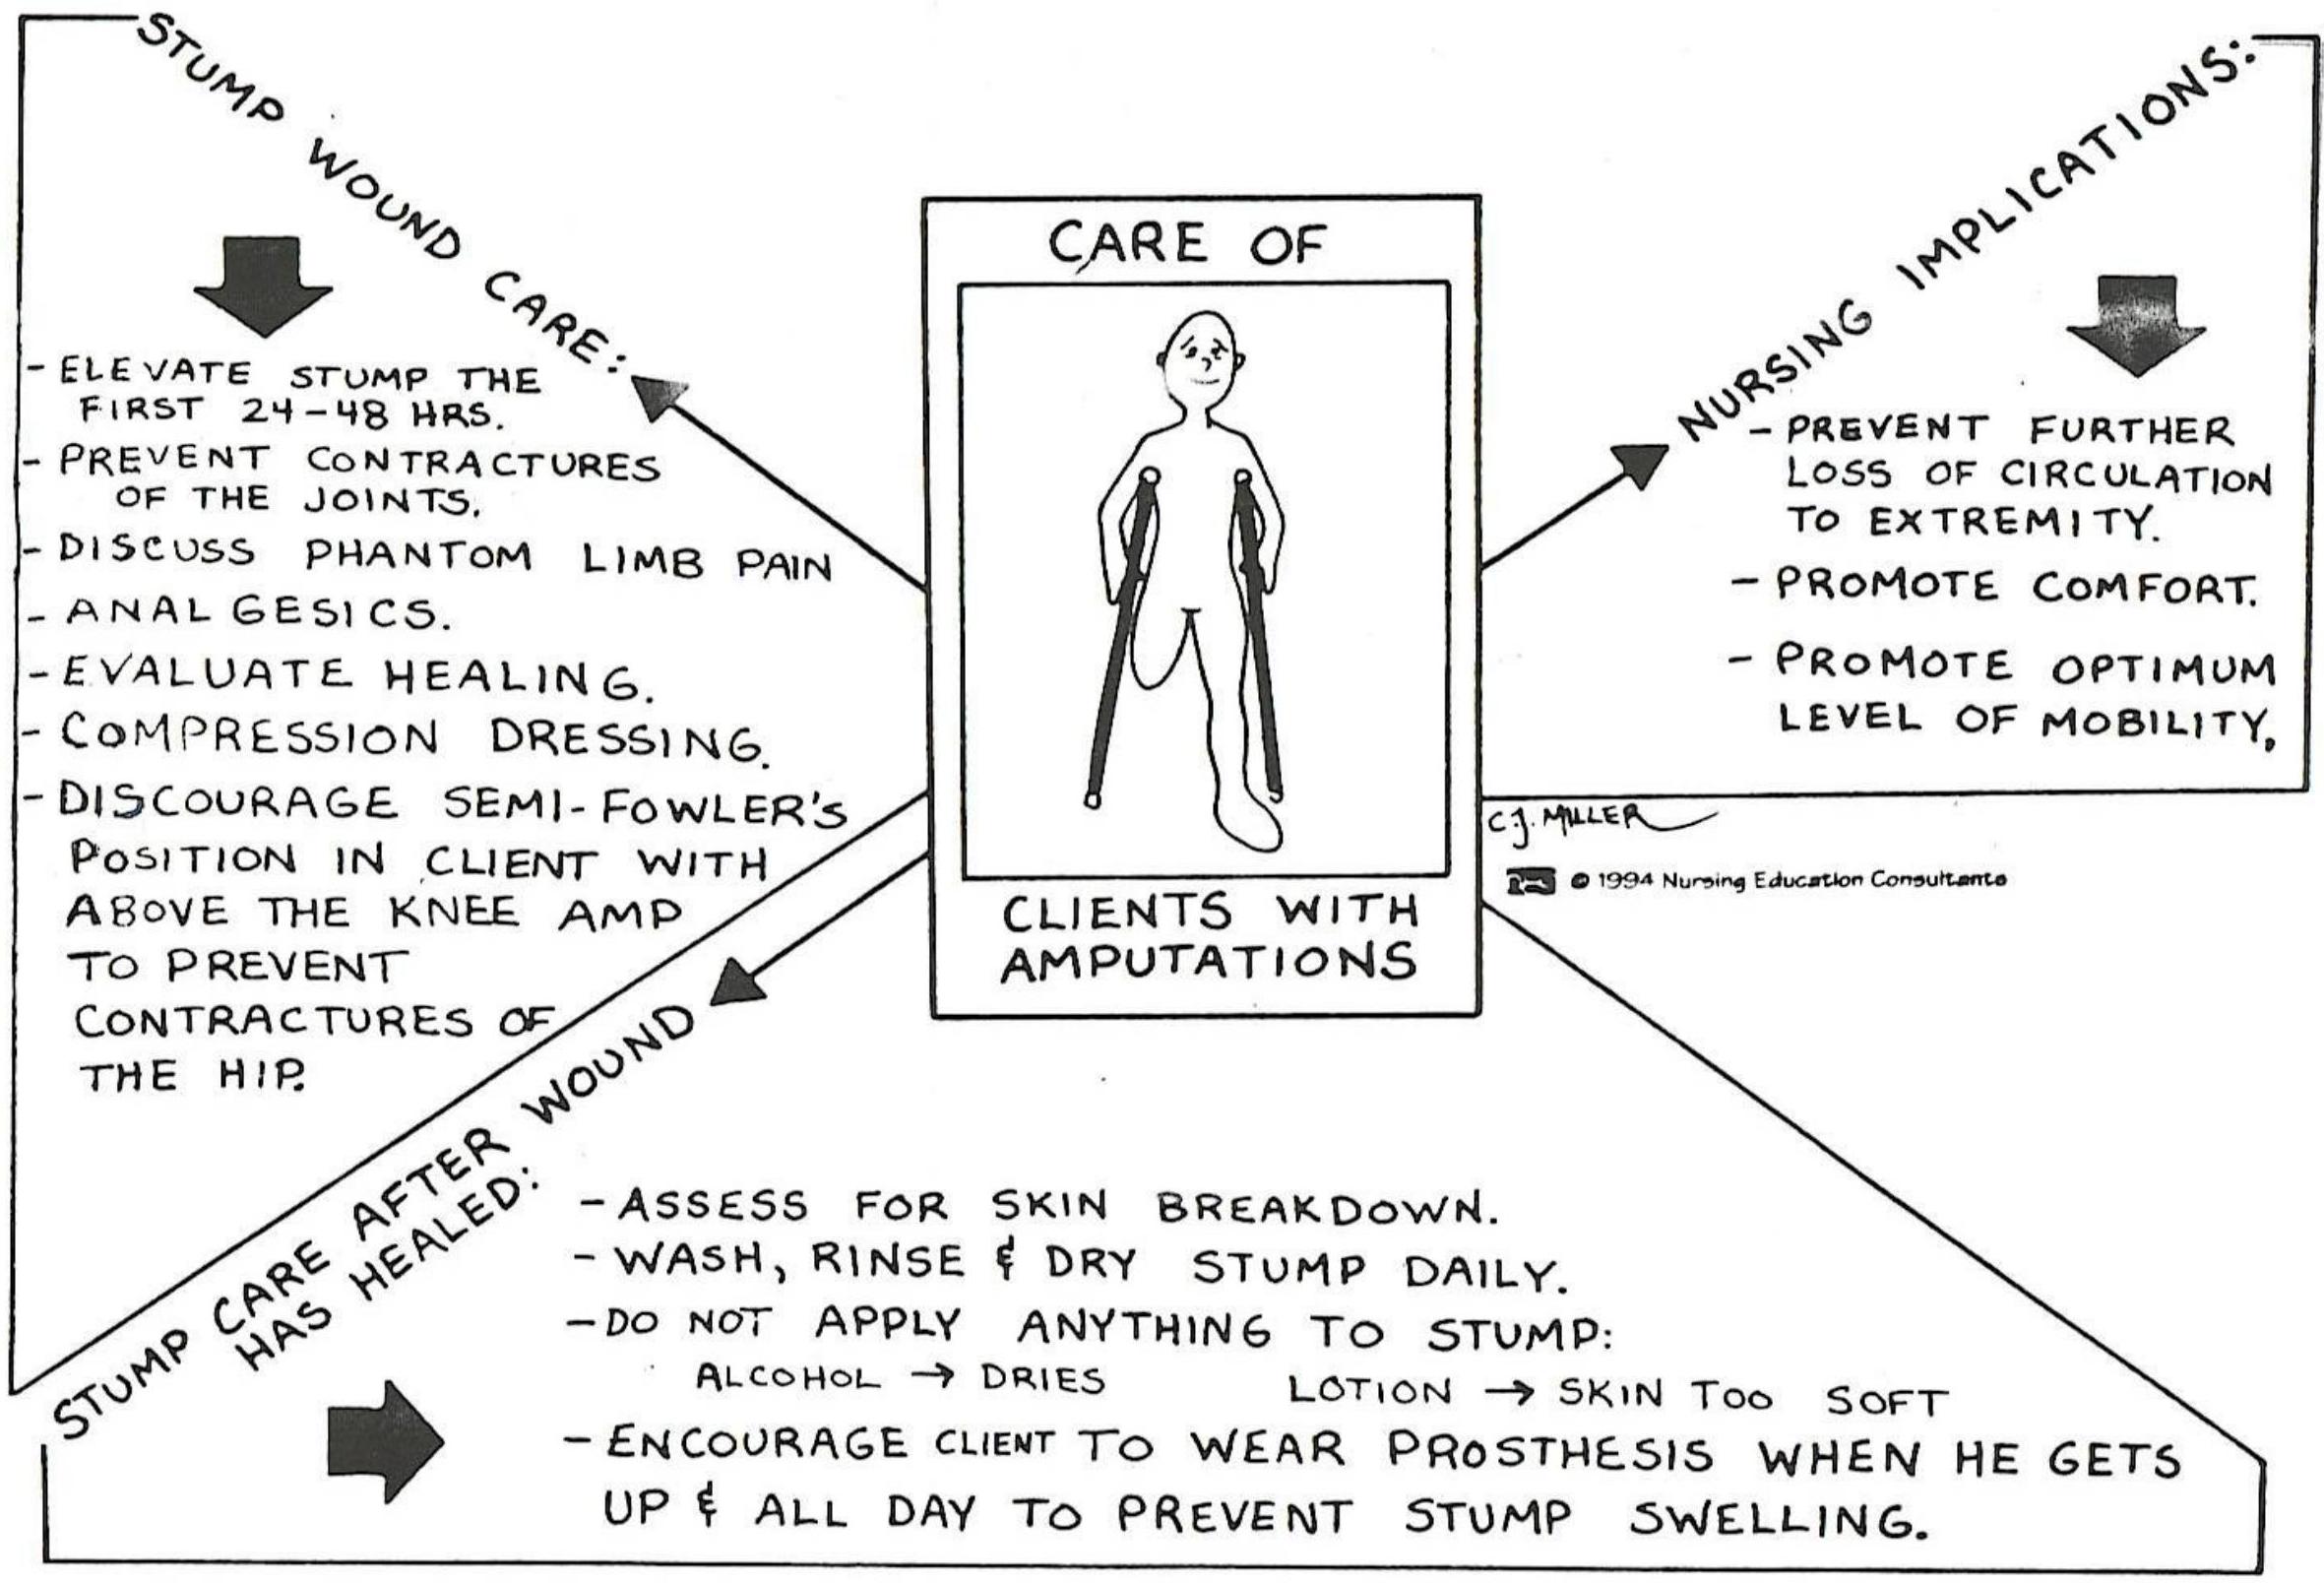 STUMP WOUND CARE:
- ELEVATE STUMP THE
FIRST 24-48 HRS.
- PREVENT CONTRACTURES
OF THE JOINTS.
- DISCUSS PHANTOM LIMB PAIN
- ANALGESICS.
- EVALUATE HEALING.
- COMPRESSION DRESSING.
- DISCOURAGE SEMI-FOWLER'S
POSITION IN CLIENT WITH
ABOVE THE KNEE AMP
TO PREVENT
CONTRACTURES OF
THE HIP.
CARE OF
CLIENTS WITH
AMPUTATIONS
NURSING IMPLICATIONS:
- PREVENT FURTHER
LOSS OF CIRCULATION
TO EXTREMITY.
- PROMOTE COMFORT.
- PROMOTE OPTIMUM
LEVEL OF MOBILITY.
C.J. MILLER
© 1994 Nursing Education Consultants
STUMP CARE AFTER WOUND
HAS HEALED:
- ASSESS FOR SKIN BREAKDOWN.
- WASH, RINSE & DRY STUMP DAILY.
- DO NOT APPLY ANYTHING TO STUMP:
ALCOHOL → DRIES LOTION → SKIN TOO SOFT
- ENCOURAGE CLIENT TO WEAR PROSTHESIS WHEN HE GETS
UP & ALL DAY TO PREVENT STUMP SWELLING.